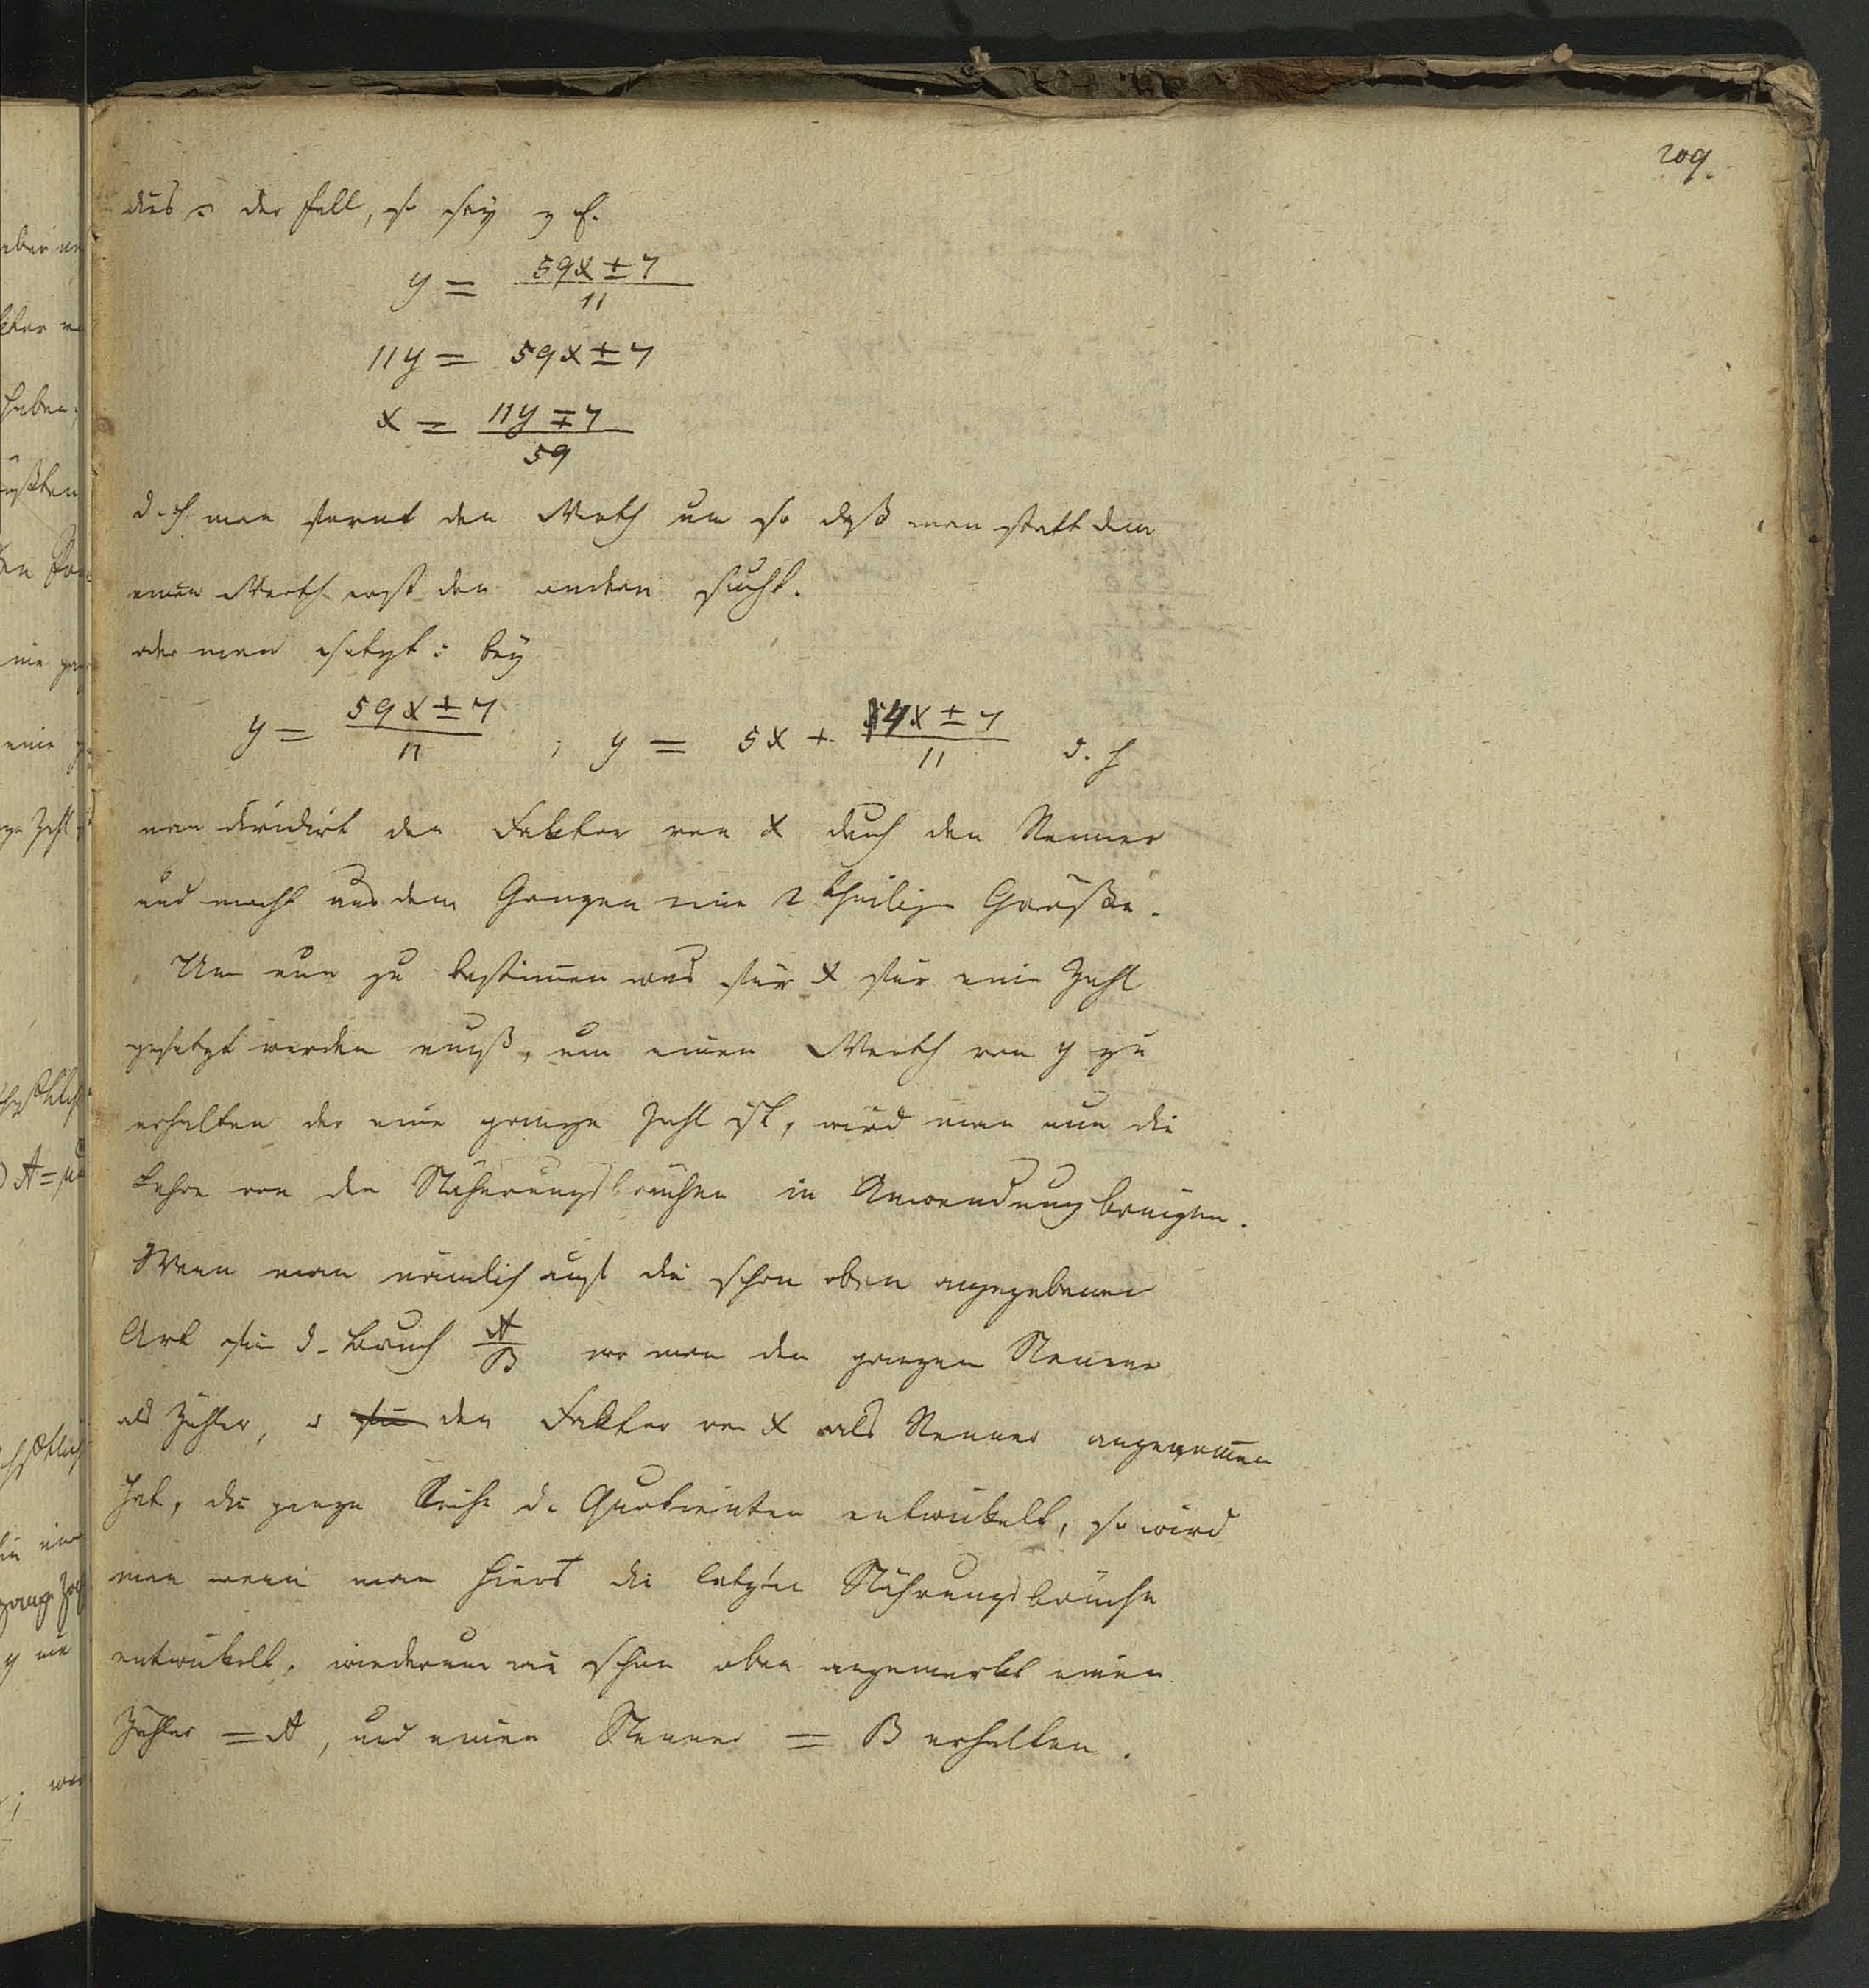 209.
dies ist der Fall, so sey z. E.
y = (59x ± 7)/11
11y = 59x ± 7
x = (11y ∓ 7)/59
d. h. man formt den Werth um so daß man statt dem
einen Werth erst den andern sucht.
oder man setzt: bey
y = (59x ± 7)/11 ; y = 5x + (4x ± 7)/11 d. h
man dividirt den Faktor von x durch den Nenner
und macht aus dem Ganzen eine 2 theilige Größe.
Um nun zu bestimen was für x für eine Zahl
gesetzt werden muß, um einen Werth von y zu
erhalten der eine ganze Zahl ist, wird man nun die
Lehre von den Näherungsbrüchen in Anwendung bringen.
Wenn man nämlich auf die schon oben angegebene
Art für d. Bruch A/B wo man den ganzen Nenner
als Zähler, u für den Faktor von x als Nenner angenomen
hat, die ganze Reihe d. Quotienten entwickelt, so wird
man wenn man hieraus die letzten Näherungsbrüche
entwickelt, wiederum wie schon oben angemerkt einen
Zähler = A, und einen Nenner = B erhalten.